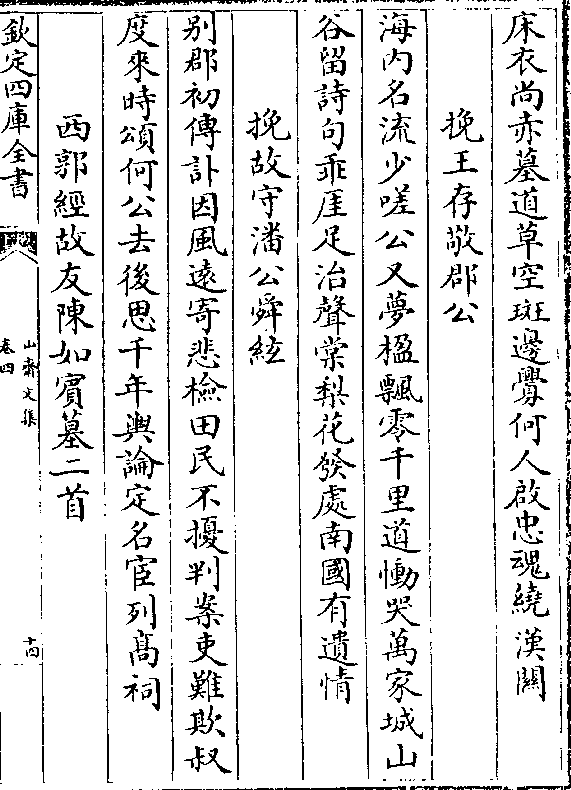 床衣尚赤墓道草空斑邊釁何人啟忠魂繞漢關
挽王存敬郡公
海内名流少嗟公又夢楹飄零千里道慟哭萬家城山
谷留詩句乖厓足治聲棠梨花發處南國有遺情
挽故守潘公舜絃
别郡初傳訃因風遠寄悲檢田民不擾判案吏難欺叔
度來時頌何公去後思千年輿論定名宦列髙祠
西郭經故友陳如賓墓二首
欽定四庫全書
山齋文集
卷四
十四